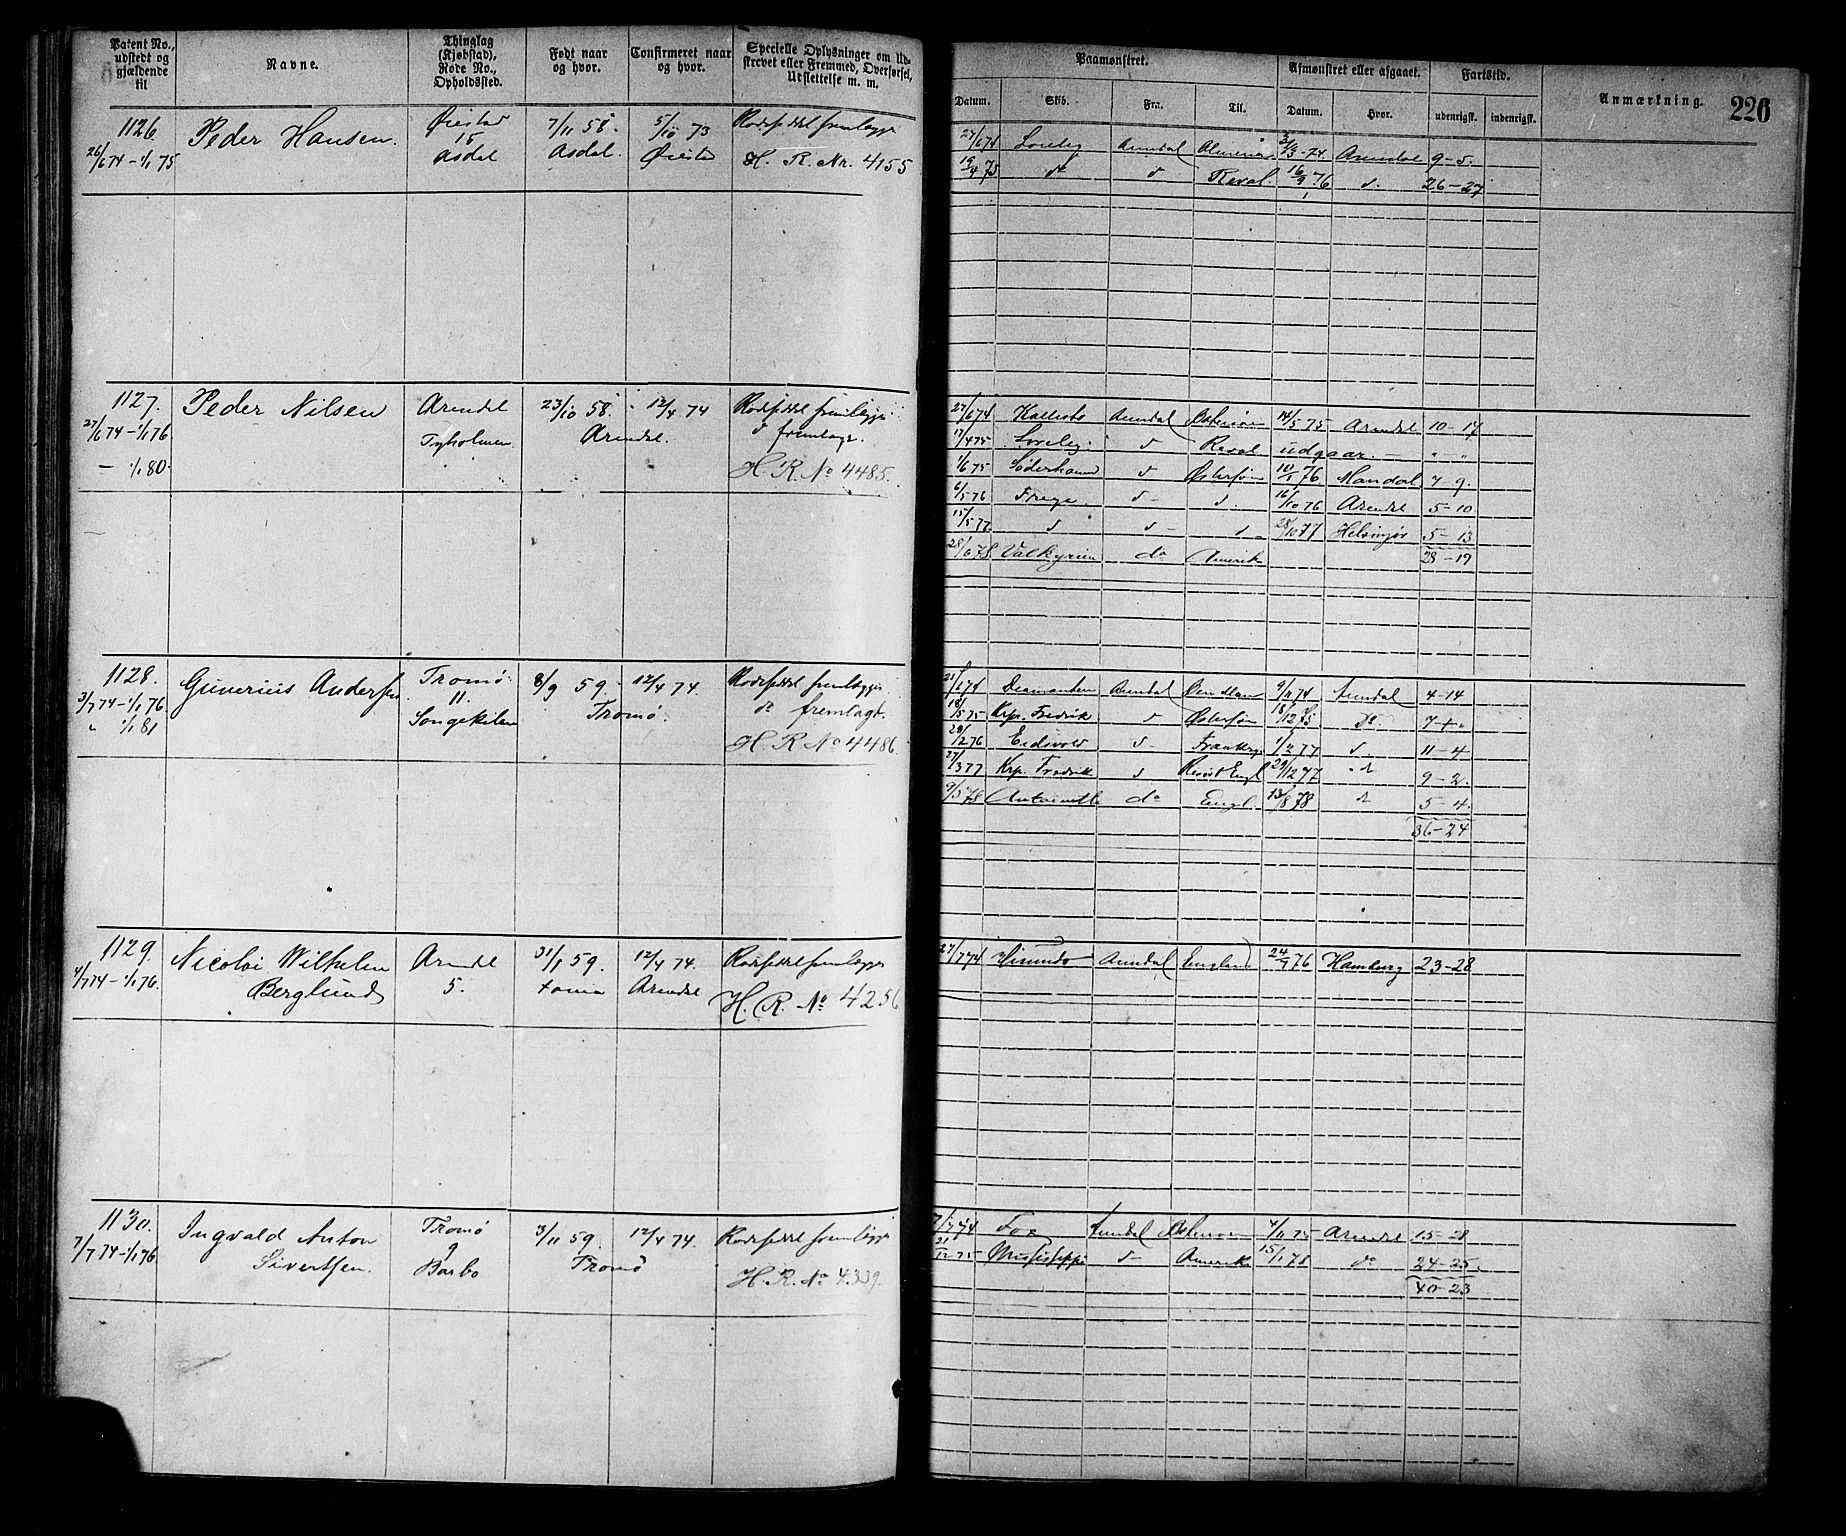 Patent No., udstedt og gjældende til
Navne.
Thinglag (Kjøbstad), Rode No., Opholdssted.
Født naar og hvor.
Confirmeret naar og hvor.
Specielle Oplysninger om Udskrevet eller Fremmed, Overførsel, Udslettelse m. m.
Paamønstret.
Afmønstret eller afgaaet.
Fartstid.
Anmærkning.
226
Datum.
Skib.
Fra.
Til.
Datum.
Hvor.
udenrigsk.
indenrigsk.
1126
26/6 74 - 1/1 75
Peder Hansen.
Øiestad
15
Asdal
7/11 58.
Asdal.
5/10 73
Øiestd
Rodeseddel fremlagt
H. R. Nr. 4155
27/6 74 Loreley Arendal 74. Arendal 9-5.
19/4 75 do d Reval. 16/9 76 d. 26-27
1127.
27/6 74 - 1/1 76
- 1/1 80.
Peder Nilsen
Arendal
Tyholmen
23/10 58.
Arendal.
12/4 74
Rodeseddel fremlagt
d fremlagt.
H. R. No 4485.
27/6 74 Kallisto Arendal Østersøn 14/5 75 Arendal 10-17
17/4 75 Loreley. d Reval udgaar. - " - "
1/6 75 Söderhamn d Østersøn 10/1 76 Mandal 7 9.
6/5 76 Freya d- d. 16/10 76 Arendal 5-10
15/5 77 d d- d- 28/10 77 Helsingør 5-13
28/6 78. Valkyrien do Amerik 28-19
1128.
3/7 74 - 1/1 76
" 1/1 81
Gunerius Andersen
Tromø.
11.
Songekilen
8/9 59.
Tromø.
12/4 74.
Rodeseddel fremlagt
do fremlagt.
H. R. No 4486
Diamanten Arendal 9/11 74 Arendal 4-14
18/5 75 Krp. Fredrik d Østersøn 18/12 75 Do
29/2 76 Eidsvold d- 1/2 77 d. 11-4
27/3 77 Krp. Fredrik d 29/12 77 d 9-2.
9/5 78 do Engl 13/8 78 d 5-4.
36-24
1129.
4/7 74 - 1/1 76.
Nicolai Wilhelm
Berglund
Arendal
5.
31/1 59.
12/4 74.
Arendal
Rodeseddel fremlagt
H. R. No 4256
27/7 74 Arendal England 24/7 76 Hamburg 23-28
1130.
7/7 74 - 1/1 76
Ingvald Anton
Sivertsen.
Tromø
9
Barbo
3/11 59.
Tromø
12/4 74.
Rodeseddel fremlagt
H. R. No 4339.
7/7 74 Fox Arendal Østersøen 4/11 75 Arendal 15-28
21/12 75 Mississippi d- Amerika 15/1 78 do 24-25.
40-23